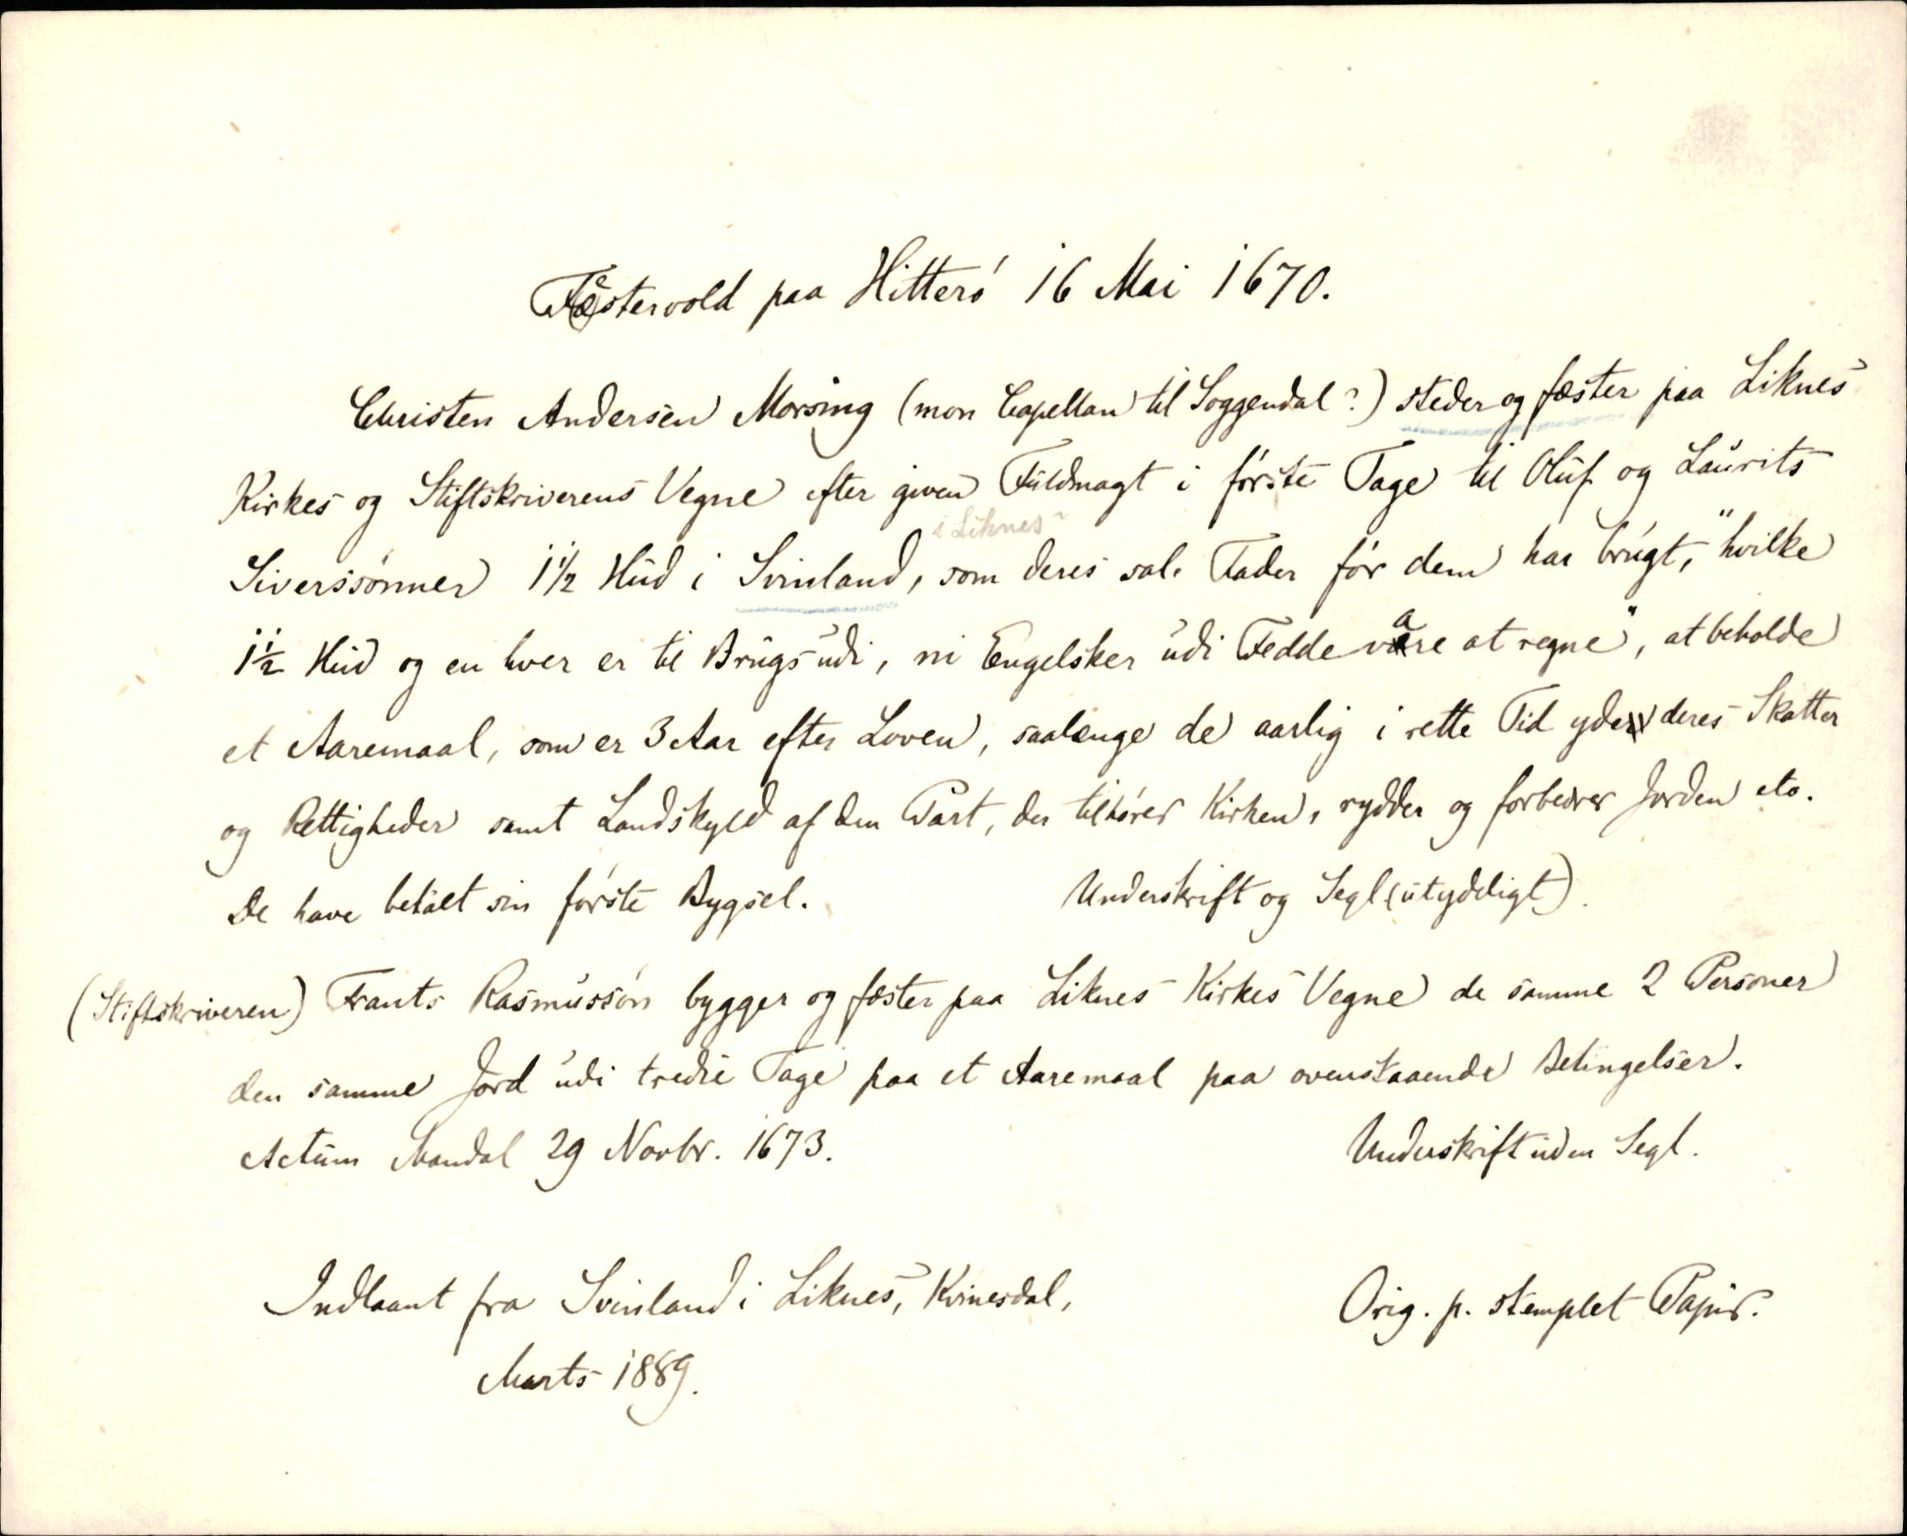 Festervold paa Hitterö 16 Mai 1670.
Christen Andersen Morsing (mon Capellan til Soggendal?) steder og fæster paa Liknes
Kirkes og Stiftskriverens Vegne efter given Fuldmagt i förste Tage til Oluf og Laurits
i Liknes
Siverssönner 1½ Hud i Svinland, som deres sal. Fader för dem har brugt, "hvilke
1½ Hud og en hver er til Brugs udi, ni Engelsker udi Fedde vare at regne", at beholde
et Aaremaal, som er 3 Aar efter Loven, saalænge de aarlig i rette Tid yde deres Skatter
og Rettigheder samt Landskyld af den Part, der tilhörer Kirken, rydder og forbedrer Jorden etc.
De have betalt sin förste Bygsel. Underskrift og Segl (utydeligt).
(Stiftskriveren) Frants Rasmussön bygger og fæster paa Liknes Kirkes Vegne de samme 2 Personer
den samme Jord udi tredie Tage paa et Aaremaal paa ovenstaaende Betingelser.
Actum Mandal 29 Novbr. 1673. Underskrift uden Segl.
Indlaant fra Svinland i Liknes, Kvinesdal, Orig. p. stemplet Papir.
Marts 1889.